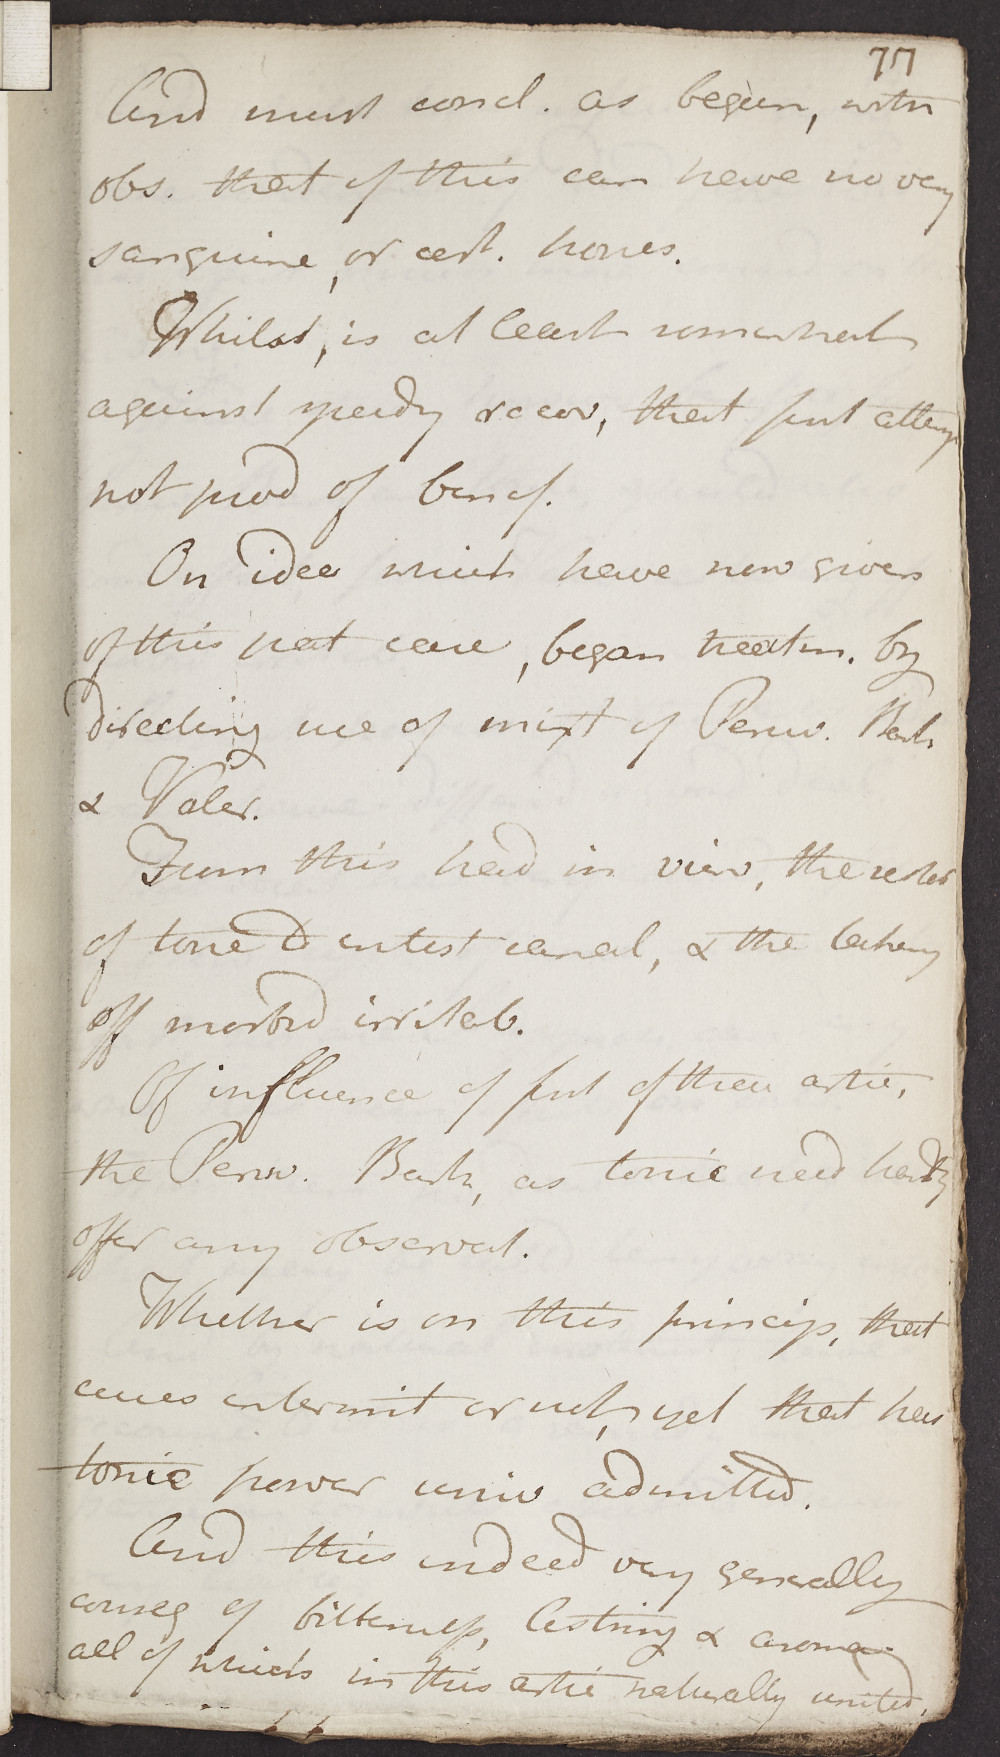 77
And must concl. as begun, with
obs. that of this can have no very
sanguine, or cert. hopes.
Whilst, is at least somewhat
against speedy recov, that first attemp
not prod of benef.
On idea which have now given
of this pat case, began treatm. by
directing use of mixt of Peruv. Bark
& Valer.
From this had in view, the restor
of tone to intest canal, & the taking
off morbid irritab.
Of influence of first of these artic,
the Peruv. Bark, as tonic need hardly
offer any observat.
Whether is on this princip, that
cures intermit or not, yet that has
tonic power univ admitted.
And this indeed very generally
conseq of bitterness, astring & aroma
all of which in this artic naturally united,